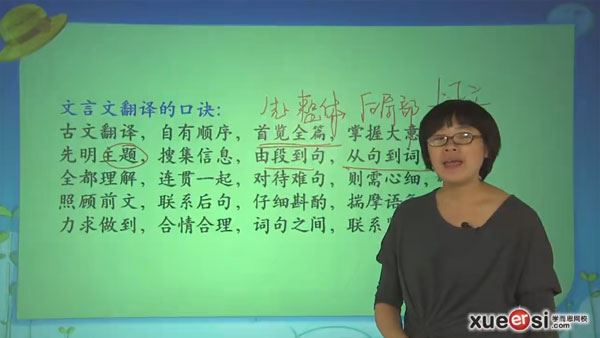 先整体 后局部
文言文翻译的口诀：
古文翻译，自有顺序，首览全篇，掌握大意
先明主题，搜集信息，由段到句，从句到词
全都理解，连贯一起，对待难句，则需心细，
照顾前文，联系后句，仔细斟酌，揣摩语
力求做到，合情合理，词句之间，联系
xueersi 学而思网校
.com